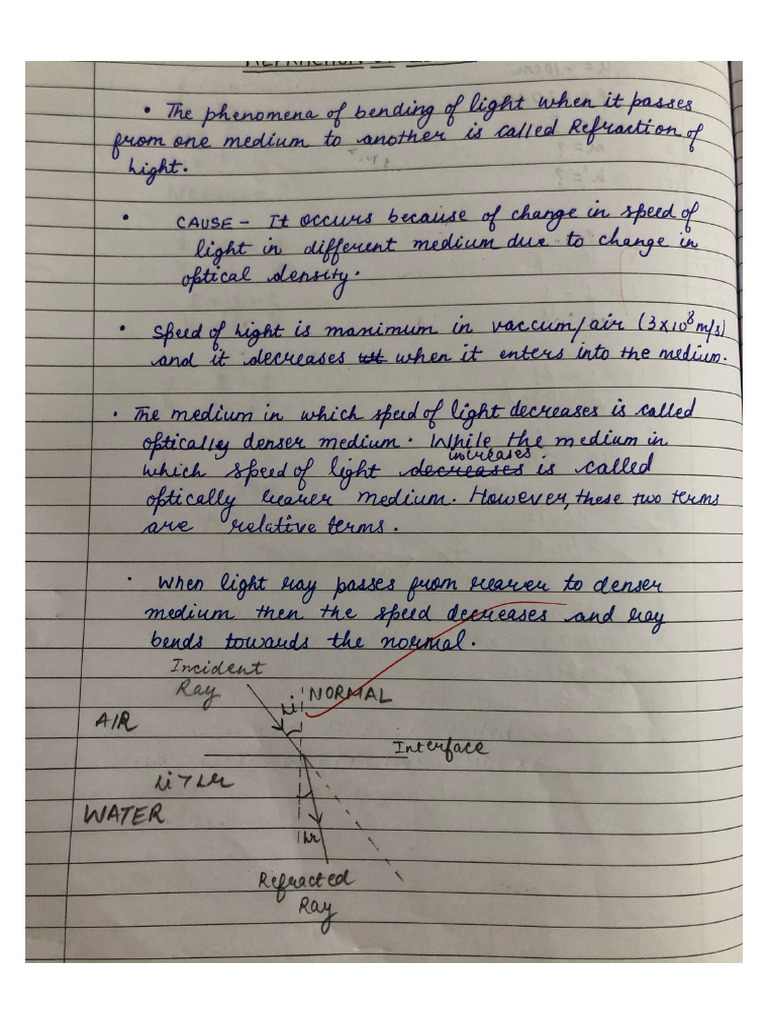 REFRACTION OF
• The phenomena of bending of light when it passes
from one medium to another is called Refraction of
light.
• CAUSE – It occurs because of change in speed of
light in different medium due to change in
optical density.
• Speed of light is maximum in vaccum/air (3x10⁸ m/s)
and it decreases when it enters into the medium.
• The medium in which speed of light decreases is called
optically denser medium. While the medium in
increases
which speed of light decreases is called
optically rearer medium. However, these two terms
are relative terms.
• When light ray passes from rearer to denser
medium then the speed decreases and ray
bends towards the normal.
Incident
Ray
∠i NORMAL
AIR
Interface
∠i > ∠r
WATER
∠r
Refracted
Ray